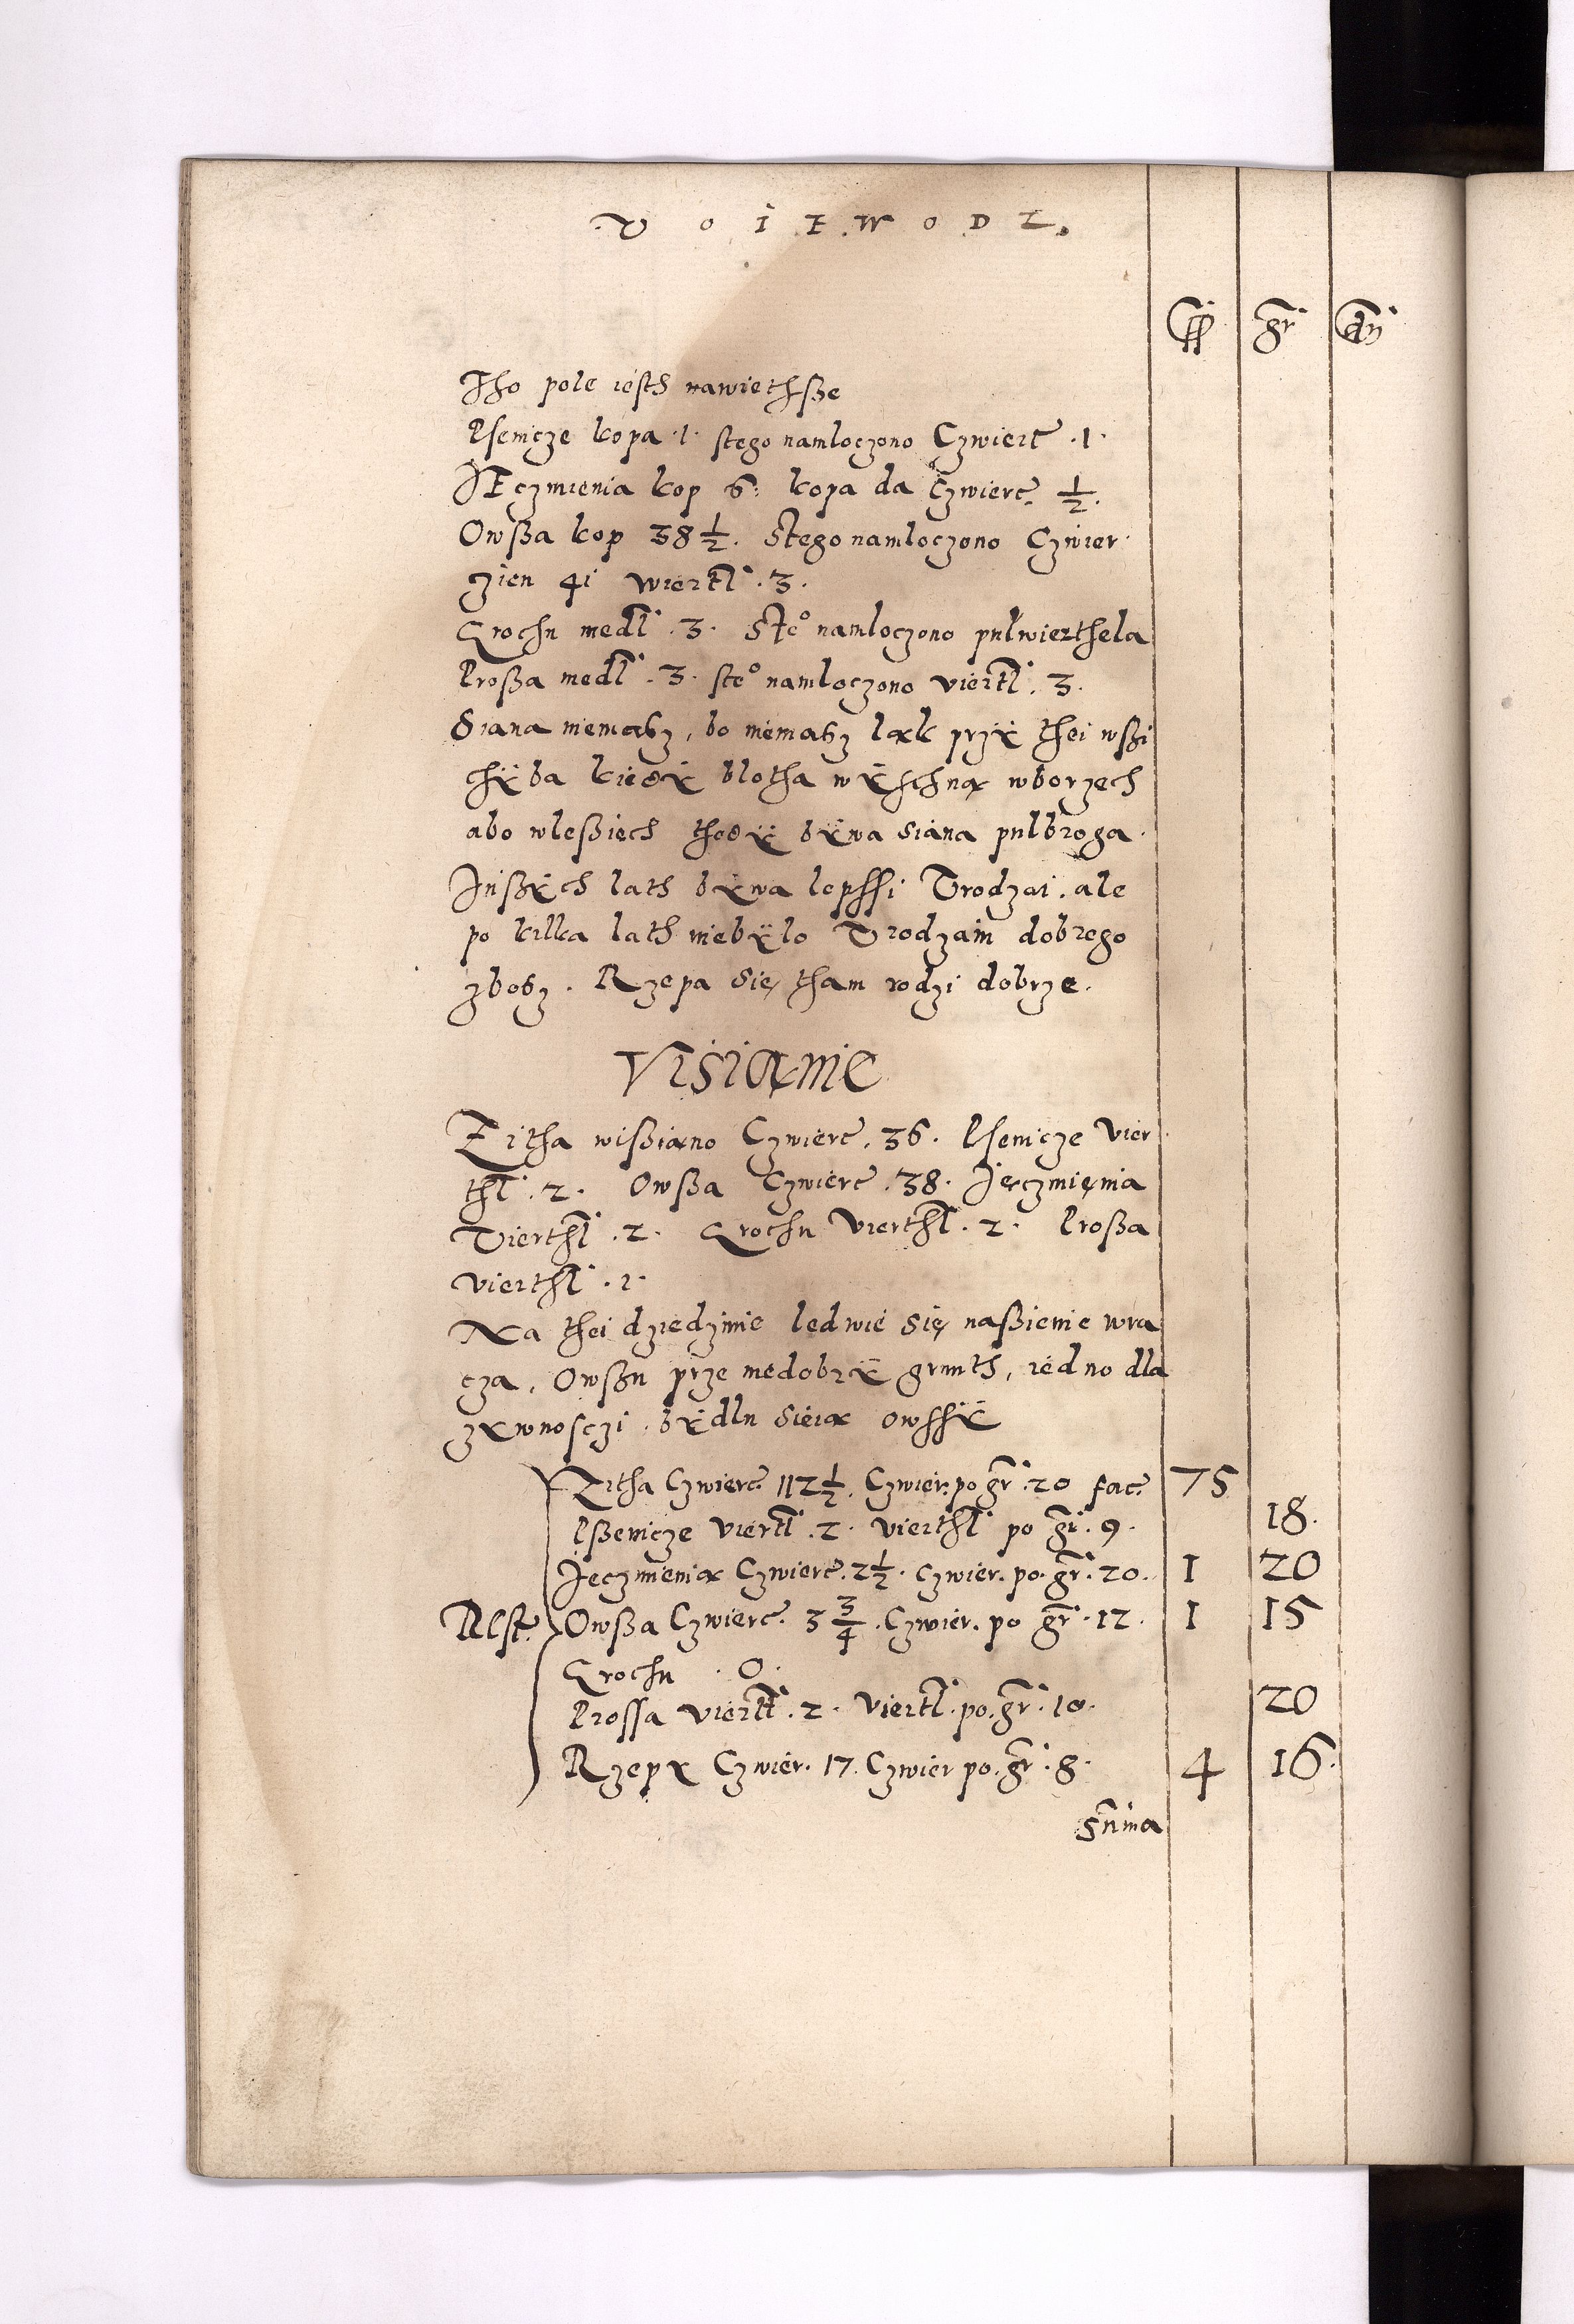 VOIEWODZ.
fl gr dn
Tho pole iesth nawiethsze
Psenicze kopa .1. stego namloczono Czwierc .1.
JEczmienia kop 6. kopa da Czwierc. 1/2.
Owßa kop 38 1/2. Stego namloczono Czwier
zien 41 wiertl .3.
Grochu medl .3. Steo namloczono pulwierthela
Proßa medl .3. steo namloczono viertl .3.
Siana niemasz, bo niemasz ląk przÿ thei wßi
chÿba kiedÿ blotha wÿschną wborzech
abo wleßiech thedÿ bÿwa siana pulbroga.
Inßÿch lath bÿwa lepssi Vrodzai. ale
po kilka lath niebÿlo Vrodzaiu dobrego
zbosz. Rzepa się tham rodzi dobrze.
VISIANIE
Zitha wißiano Czwierc .36. Psenicze vier
thl .2. Owßa Czwierc .38. Jęczmięnia
Vierthl .2. Grochu vierthl .2. Proßa
vierthl .1.
Na thei dziedzinie ledwie się naßienie wra
cza, Owßu prze niedobrÿ grunth, iedno dla
zÿwnosczi bÿdlu sieią owssÿ
Zitha Czwierc. 112 1/2. Czwier. po gr .20 fac. 75
Pßenicze viertl .2. vierthl po gr. 9. 18.
Jeczmienia Czwierc. 2 1/2. Czwier. po. gr. 20. 1 20
Rest. Owßa Czwierc. 3 3/4. Czwier. po gr. 12. 1 15
Grochu .0.
Prossa viertl .2. viertl. po. gr. 10. 20
Rzepÿ Czwier. 17. Czwier po. gr. 8. 4 16.
suma